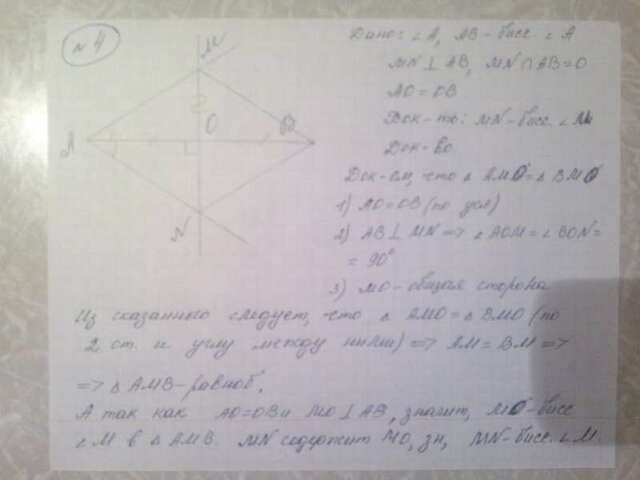 N4
M
O
B
A
N
Дано: ∠A, AB - бисс ∠A
MN ⊥ AB, MN ∩ AB = O
AO = OB
Док-ть: MN - бисс. ∠M
Док-во
Док-ем, что △ AMO = △ BMO
1) AO = OB (по усл)
2) AB ⊥ MN => ∠AOM = ∠BON =
= 90°
3) MO - общая сторона
Из сказанного следует, что △ AMO = △ BMO (по
2 ст. и углу между ними) => AM = BM =>
=> △ AMB - равноб.
А так как AO = OB и MO ⊥ AB, значит, MO - бисс
∠M в △ AMB. MN содержит MO, зн, MN - бисс. ∠M.